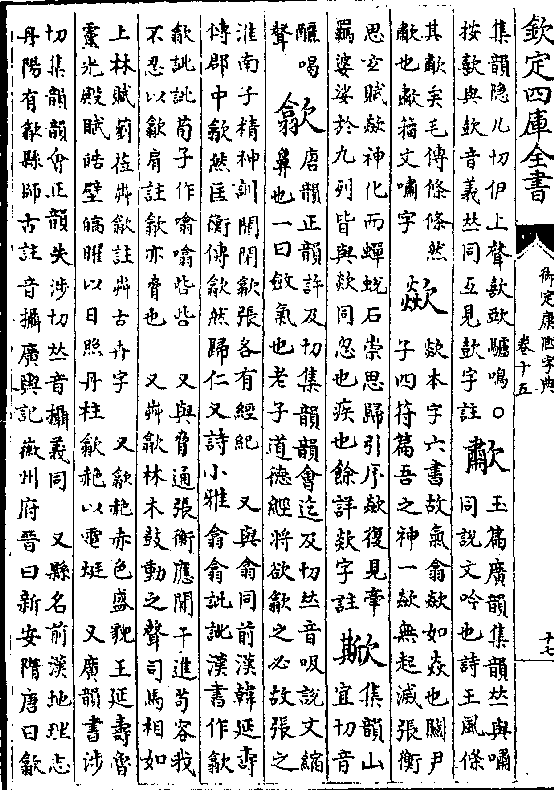 欽定四庫全書
御定康熙字典
卷十五
十七
集韻隱几切伊上聲歖歋驢鳴○
按歖與歕音義𠀤同互見歕字註
歗
玉篇廣韻集韻𠀤與嘯
同說文吟也詩王風條
其歗矣毛傳條條然
歗也歗籀文嘯字
歘
欻本字六書故氣翕欻如焱也關尹
子四符篇吾之神一欻無起滅張衡
思玄賦欻神化而蟬蛻石崇思歸引序欻復見牽
羈婆娑於九列皆與欻同忽也疾也餘詳欻字註
集韻山
宜切音
釃喝
聲
歙
唐韻正韻許及切集韻韻會迄及切𠀤音吸說文縮
鼻也一曰斂氣也老子道德經將欲歙之必故張之
淮南子精神訓開閉歙張各有經紀 又與翕同前漢韓延壽
傳郡中歙然匡衡傳歙然歸仁又詩小雅翕翕訿訿漢書作歙
歙訿訿荀子作噏噏呰呰 又與脅通張衡應閒干進苟容我
不忍以歙肩註歙亦脅也 又芔歙林木鼓動之聲司馬相如
上林賦藰莅芔歙註芔古卉字 又歙赩赤色盛貌王延壽魯
靈光殿賦皓壁皜曜以日照丹柱歙赩以電烻 又廣韻書涉
切集韻韻會正韻失涉切𠀤音攝義同 又縣名前漢地理志
丹陽有歙縣師古註音攝廣輿記徽州府晉曰新安隋唐曰歙